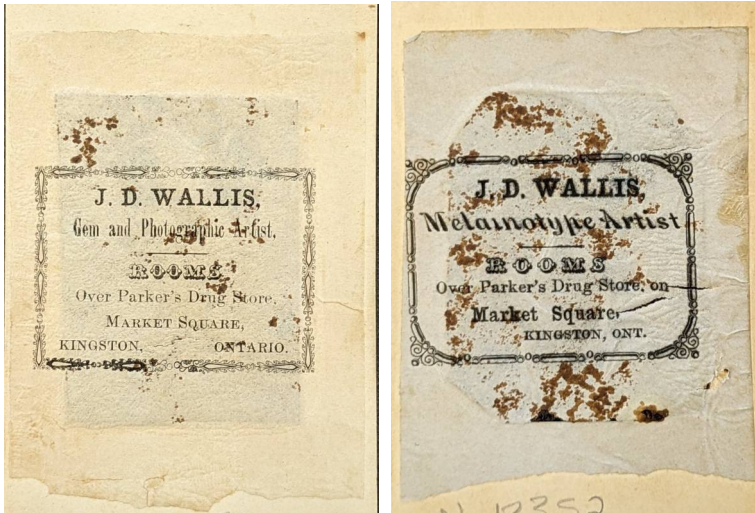 J. D. WALLIS,
Gem and Photographic Artist,
ROOMS
Over Parker's Drug Store,
MARKET SQUARE,
KINGSTON, ONTARIO.
J. D. WALLIS,
Melainotype Artist
ROOMS
Over Parker's Drug Store, on
Market Square,
KINGSTON, ONT.